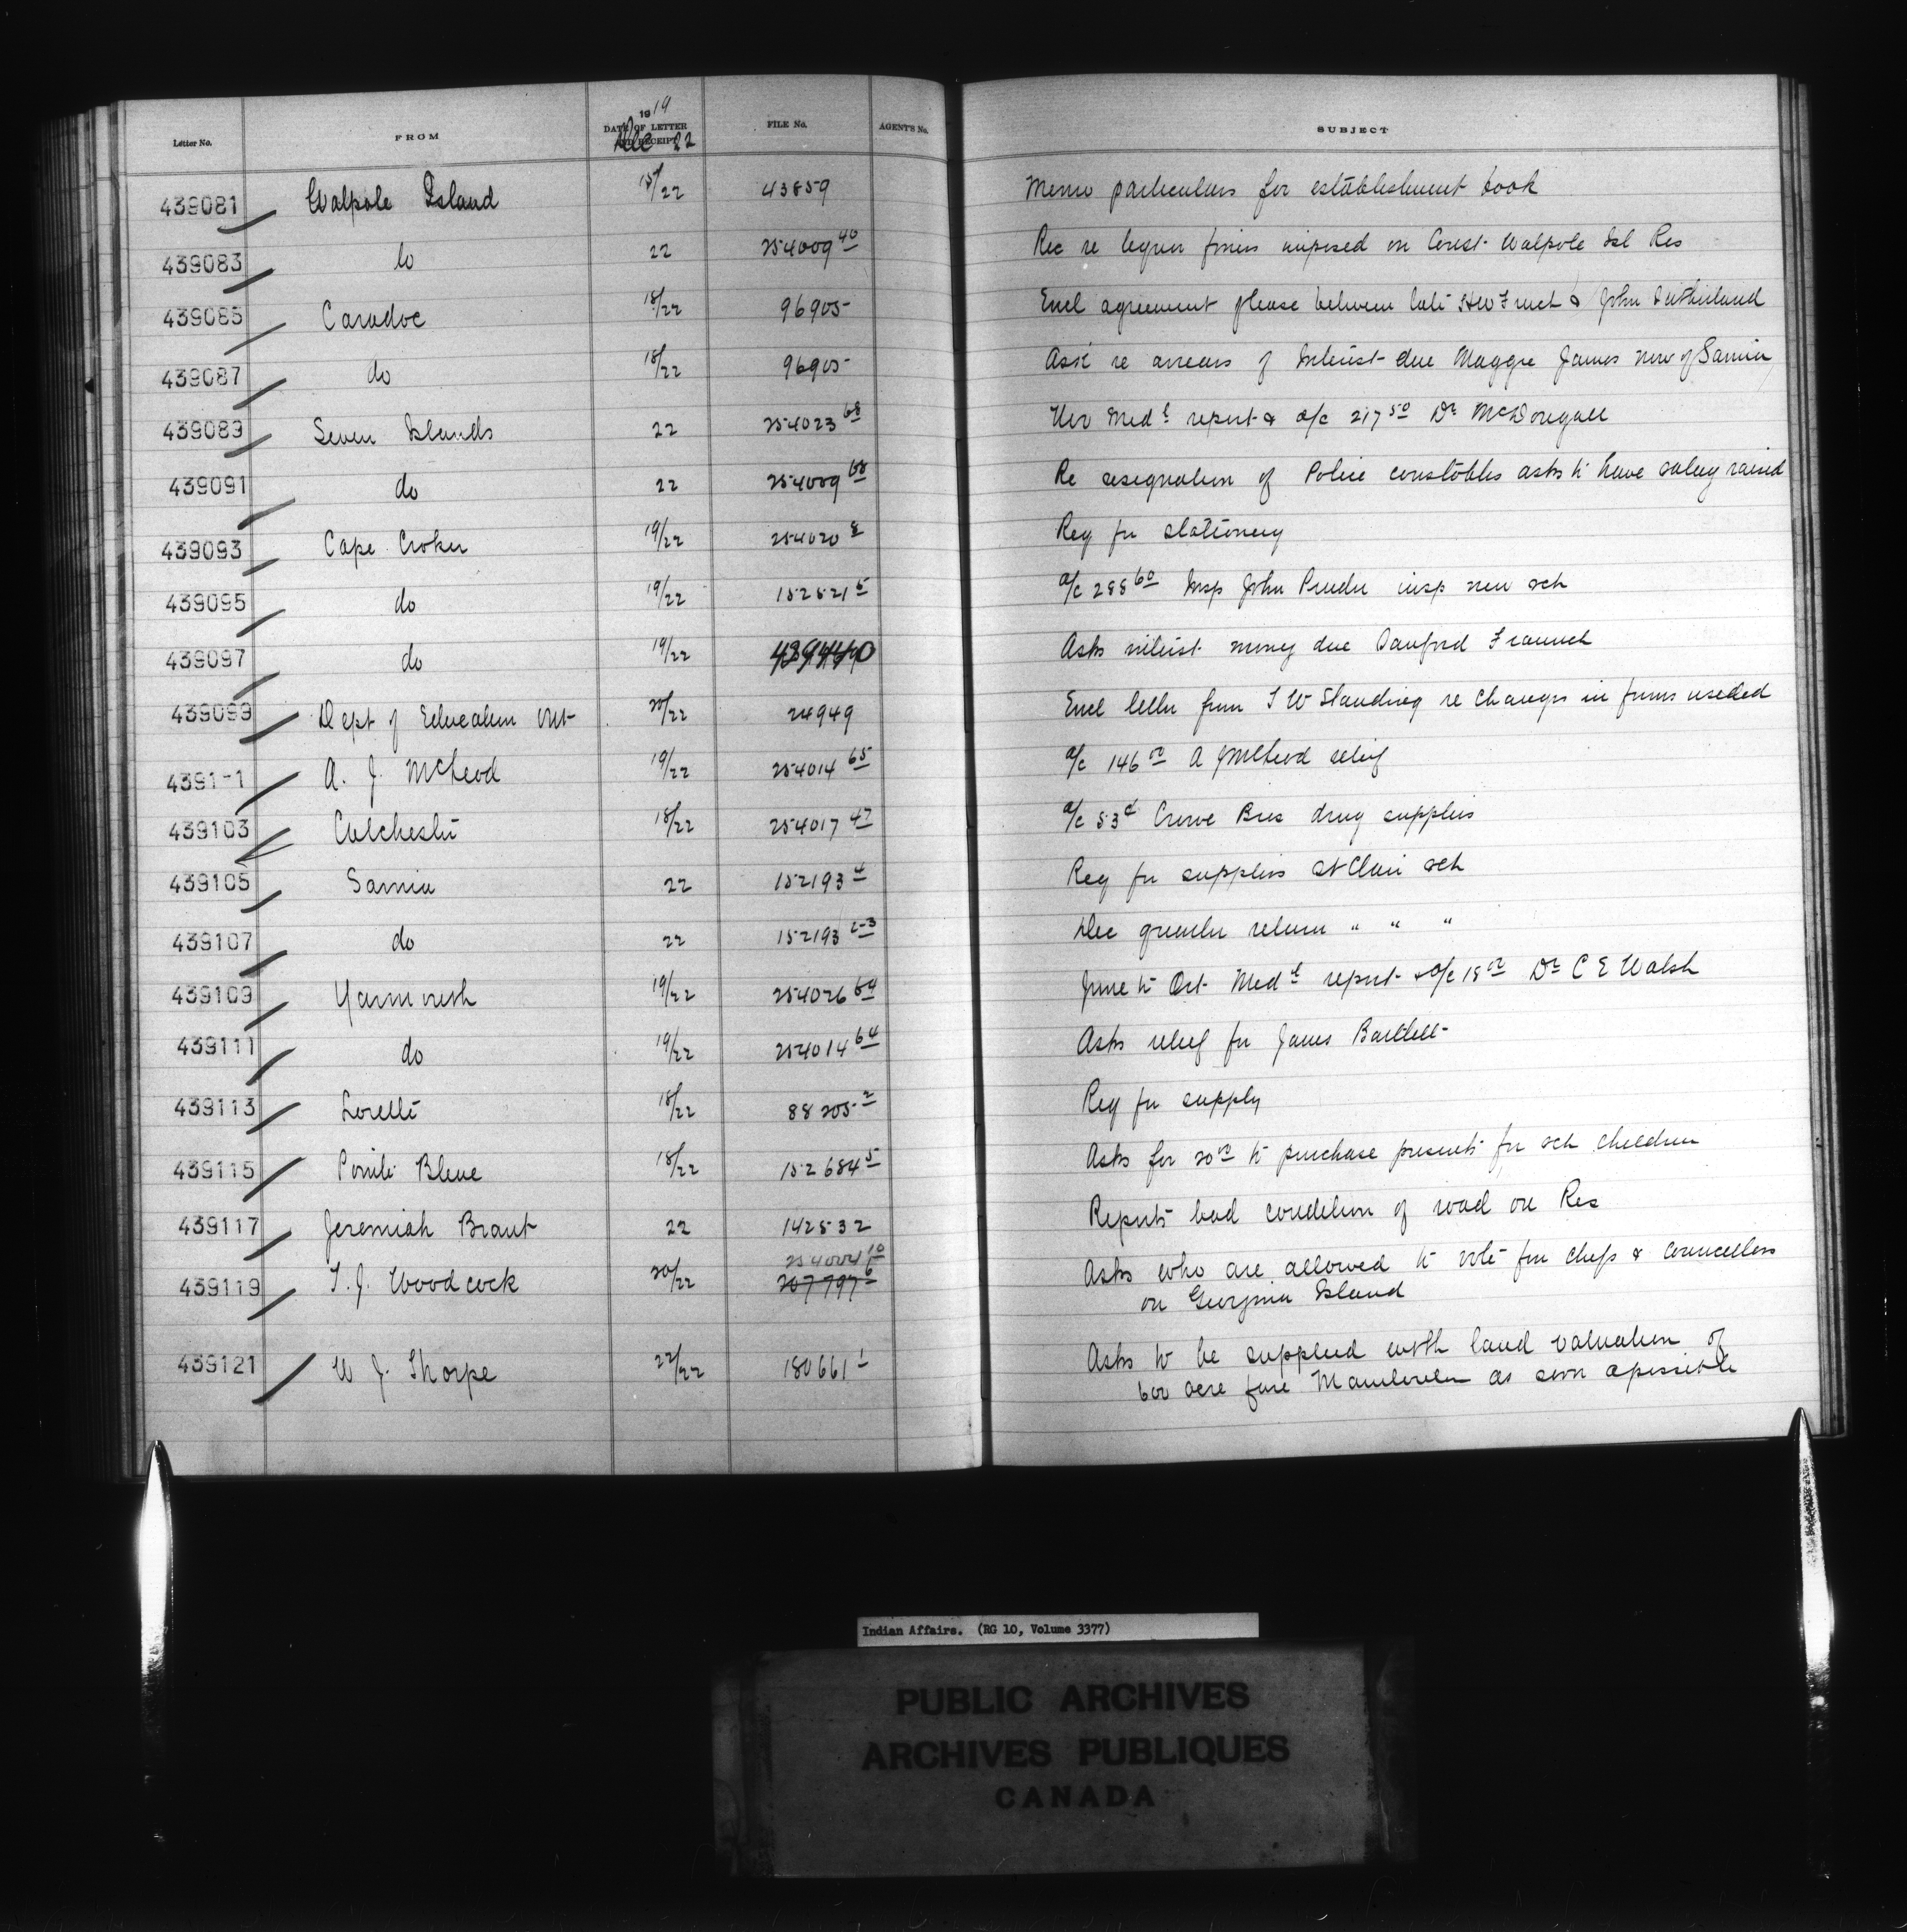 Letter No. FROM 1919 DATE OF LETTER AND RECEIPT Dec 22 FILE No. AGENT'S No. SUBJECT
439081 Walpole Island 15/22 43859 Memo particulars for establishment book
439083 do 22 254009 40 Rec re liquor fines imposed on Const Walpole Isl Res
439085 Caradoc 18/22 96905 Encl agreement please between late & John Sutherland
439087 do 18/22 96905 Ask re arrears of Interest due Maggie James now of Sarnia
439089 Seven Islands 22 254023 68 Nov Medl report & a/c 217 50 Dr McDougall
439091 do 22 254009 68 Re resignation of Police constables asks to have salary raised
439093 Cape Croker 19/22 254020 8 Req for stationery
439095 do 19/22 152521 5 a/c 288 60 Insp John insp new sch
439097 do 19/22 Asks interest money due
439099 Dept of Education Ont 20/22 24949 Encl letter from T W Standing re changes in forms needed
4391-1 A. J. McLeod 19/22 254014 65 a/c 146 00 A J McLeod relief
439103 Colchester 18/22 254017 47 a/c 53 c Crowe Bros drug supplies
439105 Sarnia 22 152193 4 Req for supplies St Clair sch
439107 do 22 152193 2-3 Dec quarter return " " "
439109 Yarmouth 19/22 254026 64 June to Oct Medl report & a/c 18 00 Dr C E Walsh
439111 do 19/22 254014 64 Asks relief for James Bartlett
439113 Lorette 18/22 88205-2 Req for supply
439115 Pointe Bleue 18/22 152684 5 Asks for 20 00 to purchase presents for sch children
439117 Jeremiah Brant 22 142532 Reports bad condition of road on Res
254004 10
439119 T. J. Woodcock 20/22 207797 6 Asks who are allowed to vote for chefs & Councellors
on Georgina Island
439121 W J Thorpe 22/22 180661 1 Asks to be supplied with land valuation of
600 acre farm as soon a possible
Indian Affairs. (RG 10, Volume 3377)
PUBLIC ARCHIVES
ARCHIVES PUBLIQUES
CANADA